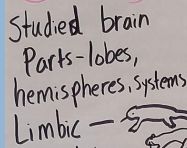 Studied brain
Parts-lobes,
hemispheres, systems
Limbic -